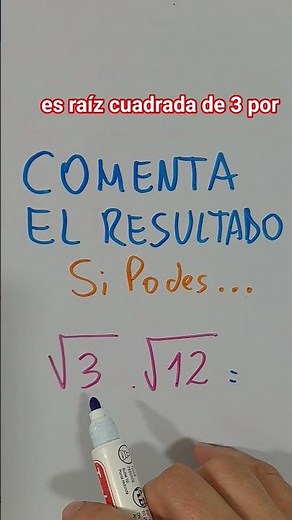 es raíz cuadrada de 3 por
COMENTA
EL RESULTADO
Si Podes...
√3 . √12 =